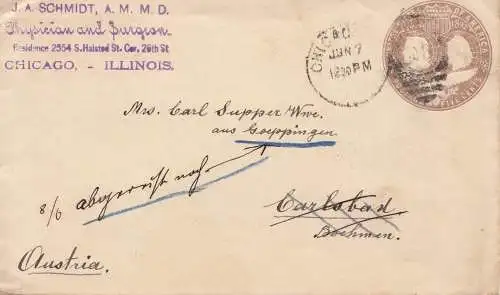 J. A. SCHMIDT, A. M. M. D.
Physician and Surgeon.
Residence 2554 S. Halsted St. Cor. 26th St
CHICAGO, - ILLINOIS.
CHICAGO
JUN 7
1230 PM
Mrs. Carl Supper Wwe.
aus Goeppingen
8/6 abgereist nach
Carlsbad
Boehmen.
Austria.